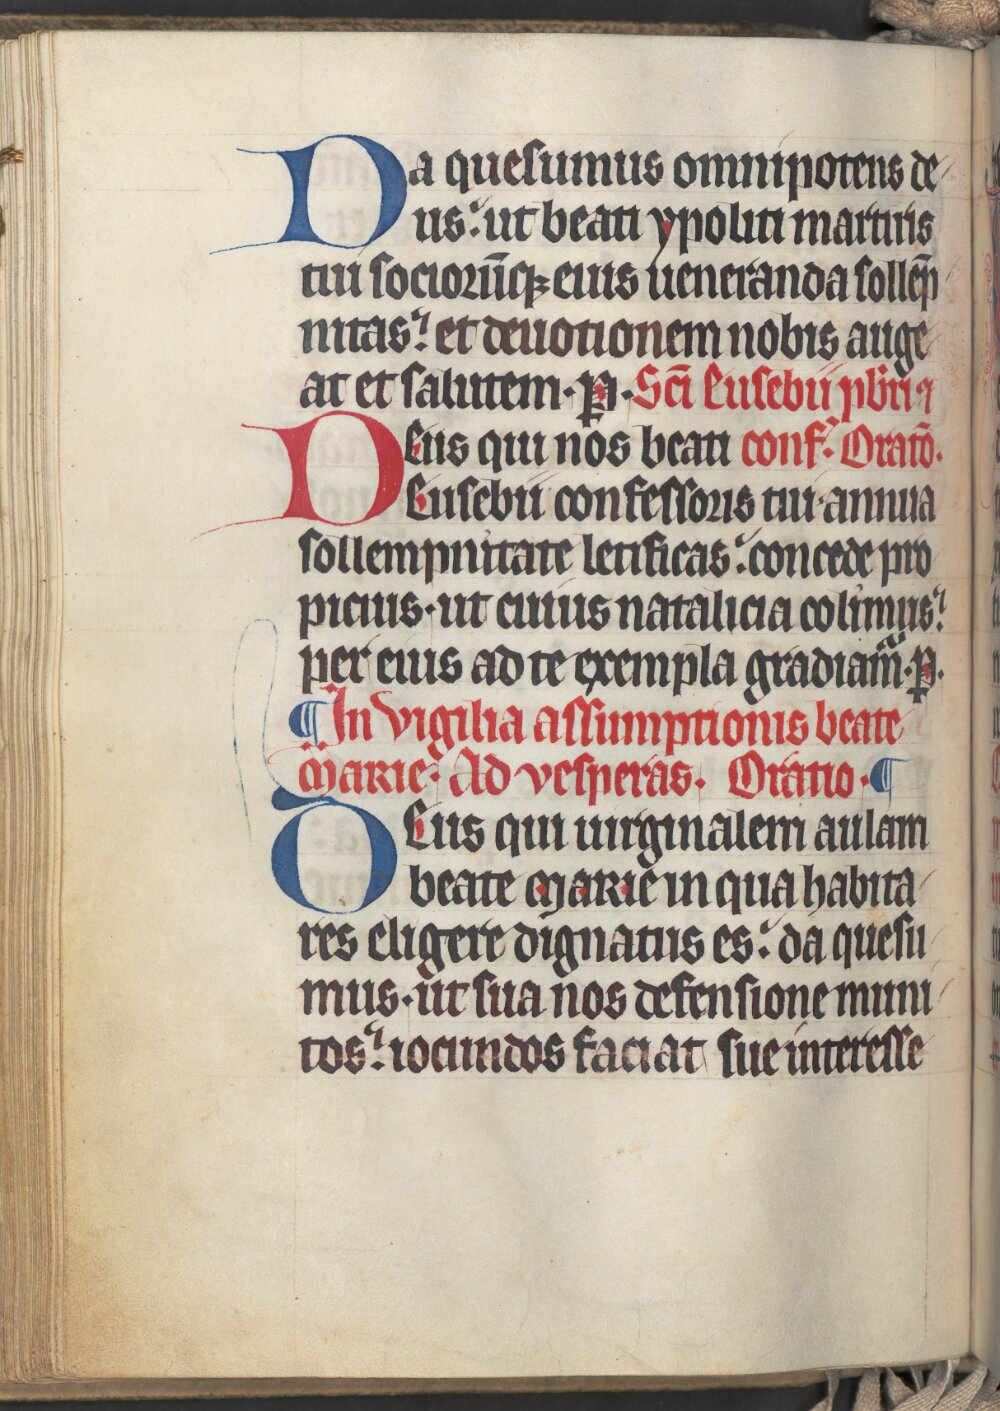 Da quesumus omnipotens de
us: ut beati ypoliti martiris
tui sociorūq; eius ueneranda sollēp
nitas: et deuotionem nobis auge
at et salutem. p̲. Sc̄i Eusebii pb̄ri ⁊
Deus qui nos beati conf̄. Oratō.
Eusebii confessoris tui annua
sollempnitate letificas: concede pro
picius. ut cuius natalicia colimus:
per eius ad te exempla gradiam̄. p̲.
¶ In vigilia assumptionis beate
Marie. Ad vesperas. Oratio. ¶
Deus qui uirginalem aulam
beate Marie in qua habita
res eligere dignatus es: da quesu
mus. ut sua nos defensione muni
tos: iocundos faciat sue interesse